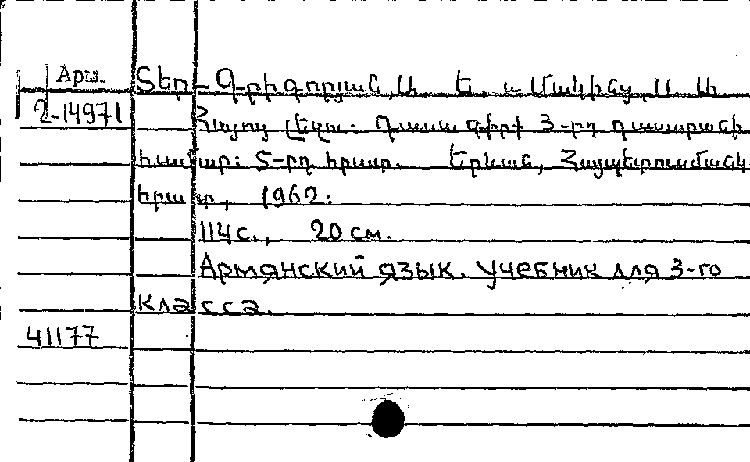 Арм.
2-14971
Տեր-Գրիգորյան, Ա. Ե. և Մակինց, Ա. Ա.
Հայոց լեզու: Դասագիրք 3-րդ դասարանի
համար: 5-րդ հրատ. Երևան, Հայպետուսմանկ
հրատ, 1962.
114 с., 20 см.
Армянский язык. Учебник для 3-го
класса.
41177